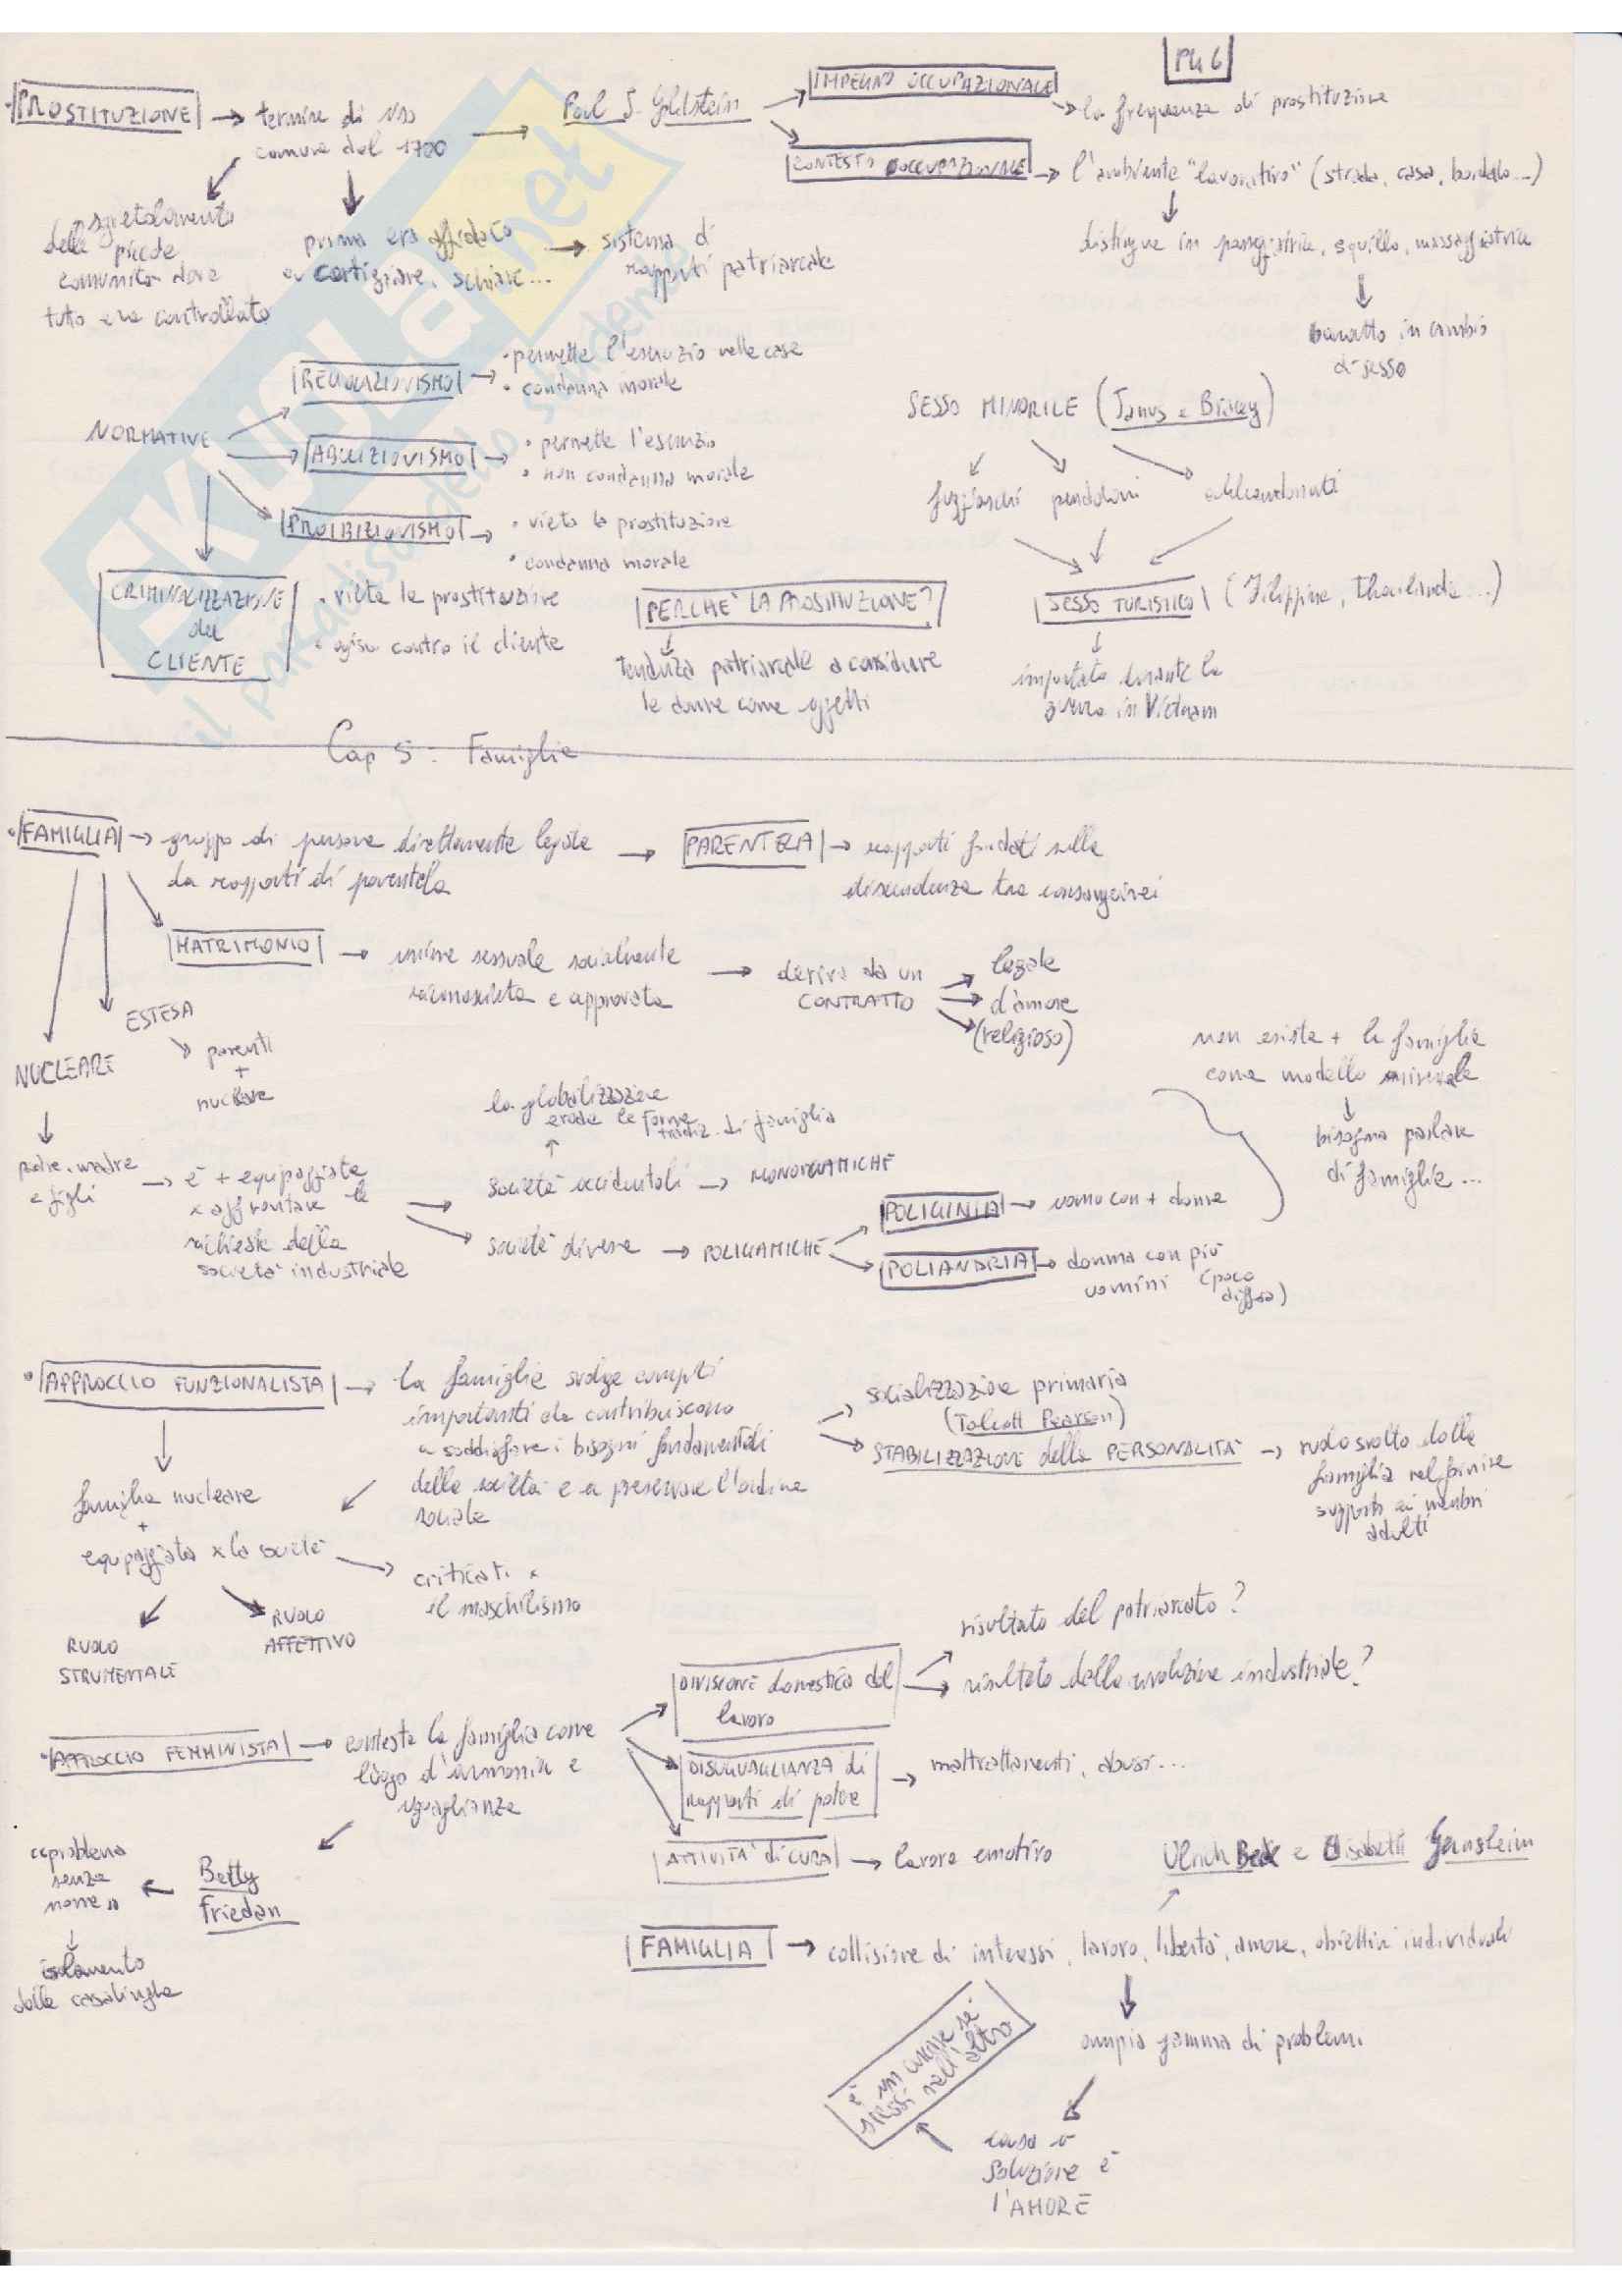 PAG 6
PROSTITUZIONE
termine di uso
comune dal 1700
sgretolamento
delle piccole
comunità dove
tutto era controllato
prima era affidato
a cortigiane, schiave...
sistema di
rapporti patriarcale
Paul J. Goldstein
IMPEGNO OCCUPAZIONALE
la frequenza di prostituzione
CONTESTO OCCUPAZIONALE
l'ambiente "lavorativo" (strada, casa, bordello...)
distingue in passeggiatrice, squillo, massaggiatrice
baratto in cambio
di sesso
NORMATIVE
REGOLAZIONISMO
• permette l'esercizio nelle case
• condanna morale
ABOLIZIONISMO
• permette l'esercizio
• non condanna morale
PROIBIZIONISMO
• vieta la prostituzione
• condanna morale
CRIMINALIZZAZIONE
del
CLIENTE
• vieta la prostituzione
• agisce contro il cliente
PERCHE' LA PROSTITUZIONE?
tendenza patriarcale a considerare
le donne come oggetti
SESSO MINORILE (Janus e Bracey)
fuggiaschi pendolari abbandonati
SESSO TURISTICO
(Filippine, Thailandia...)
importato durante la
guerra in Vietnam
SKUOLA.net
il paradiso dello studente
Cap 5: Famiglie
• FAMIGLIA
gruppo di persone direttamente legate
da rapporti di parentela
PARENTELA
rapporti fondati sulla
discendenza tra consanguinei
MATRIMONIO
unione sessuale socialmente
riconosciuta e approvata
deriva da un
CONTRATTO
legale
d'amore
(religioso)
ESTESA
parenti
+
nucleare
NUCLEARE
padre, madre
e figli
è + equipaggiata
x affrontare le
richieste della
società industriale
la globalizzazione
erode le forme
tradiz. di famiglia
società occidentali
MONOGAMICHE
società diverse
POLIGAMICHE
POLIGINIA
uomo con + donne
POLIANDRIA
donna con più
uomini (poco
diffusa)
non esiste + la famiglia
come modello universale
bisogna parlare
di famiglie...
• APPROCCIO FUNZIONALISTA
la famiglia svolge compiti
importanti che contribuiscono
a soddisfare i bisogni fondamentali
della società e a preservare l'ordine
sociale
socializzazione primaria
(Talcott Pearson)
STABILIZZAZIONE della PERSONALITÀ
ruolo svolto dalla
famiglia nel fornire
supporto ai membri
adulti
famiglia nucleare
+
equipaggiata x la società
criticati x
il maschilismo
RUOLO
STRUMENTALE
RUOLO
AFFETTIVO
• APPROCCIO FEMMINISTA
contesta la famiglia come
luogo d'armonia e
uguaglianza
DIVISIONE domestica del
lavoro
risultato del patriarcato?
risultato della rivoluzione industriale?
DISUGUAGLIANZA di
rapporti di potere
maltrattamenti, abusi...
ATTIVITÀ di CURA
lavoro emotivo
Betty
Friedan
"problema
senza
nome"
isolamento
delle casalinghe
Ulrich Beck e Elisabeth Gernsheim
FAMIGLIA
collisione di interessi, lavoro, libertà, amore, obiettivi individuali
ampia gamma di problemi
causa e
soluzione è
l'AMORE
è un cercare se
stessi nell'altro